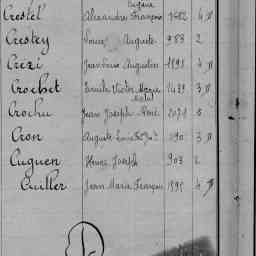 Eugène
Crestel Alexandre François 1682 4 D
Crestey Louis Auguste 988 2
Crézi Jean Louis Augustin 1891 4 D
Crochet Émile Victor Marie 1439 3 D
Crochu Jean Joseph René 2071 5
Cron Auguste Louis 190 3 D
Cuguen Henri Joseph 903 2
Cuiller Jean Marie François 1595 4 D